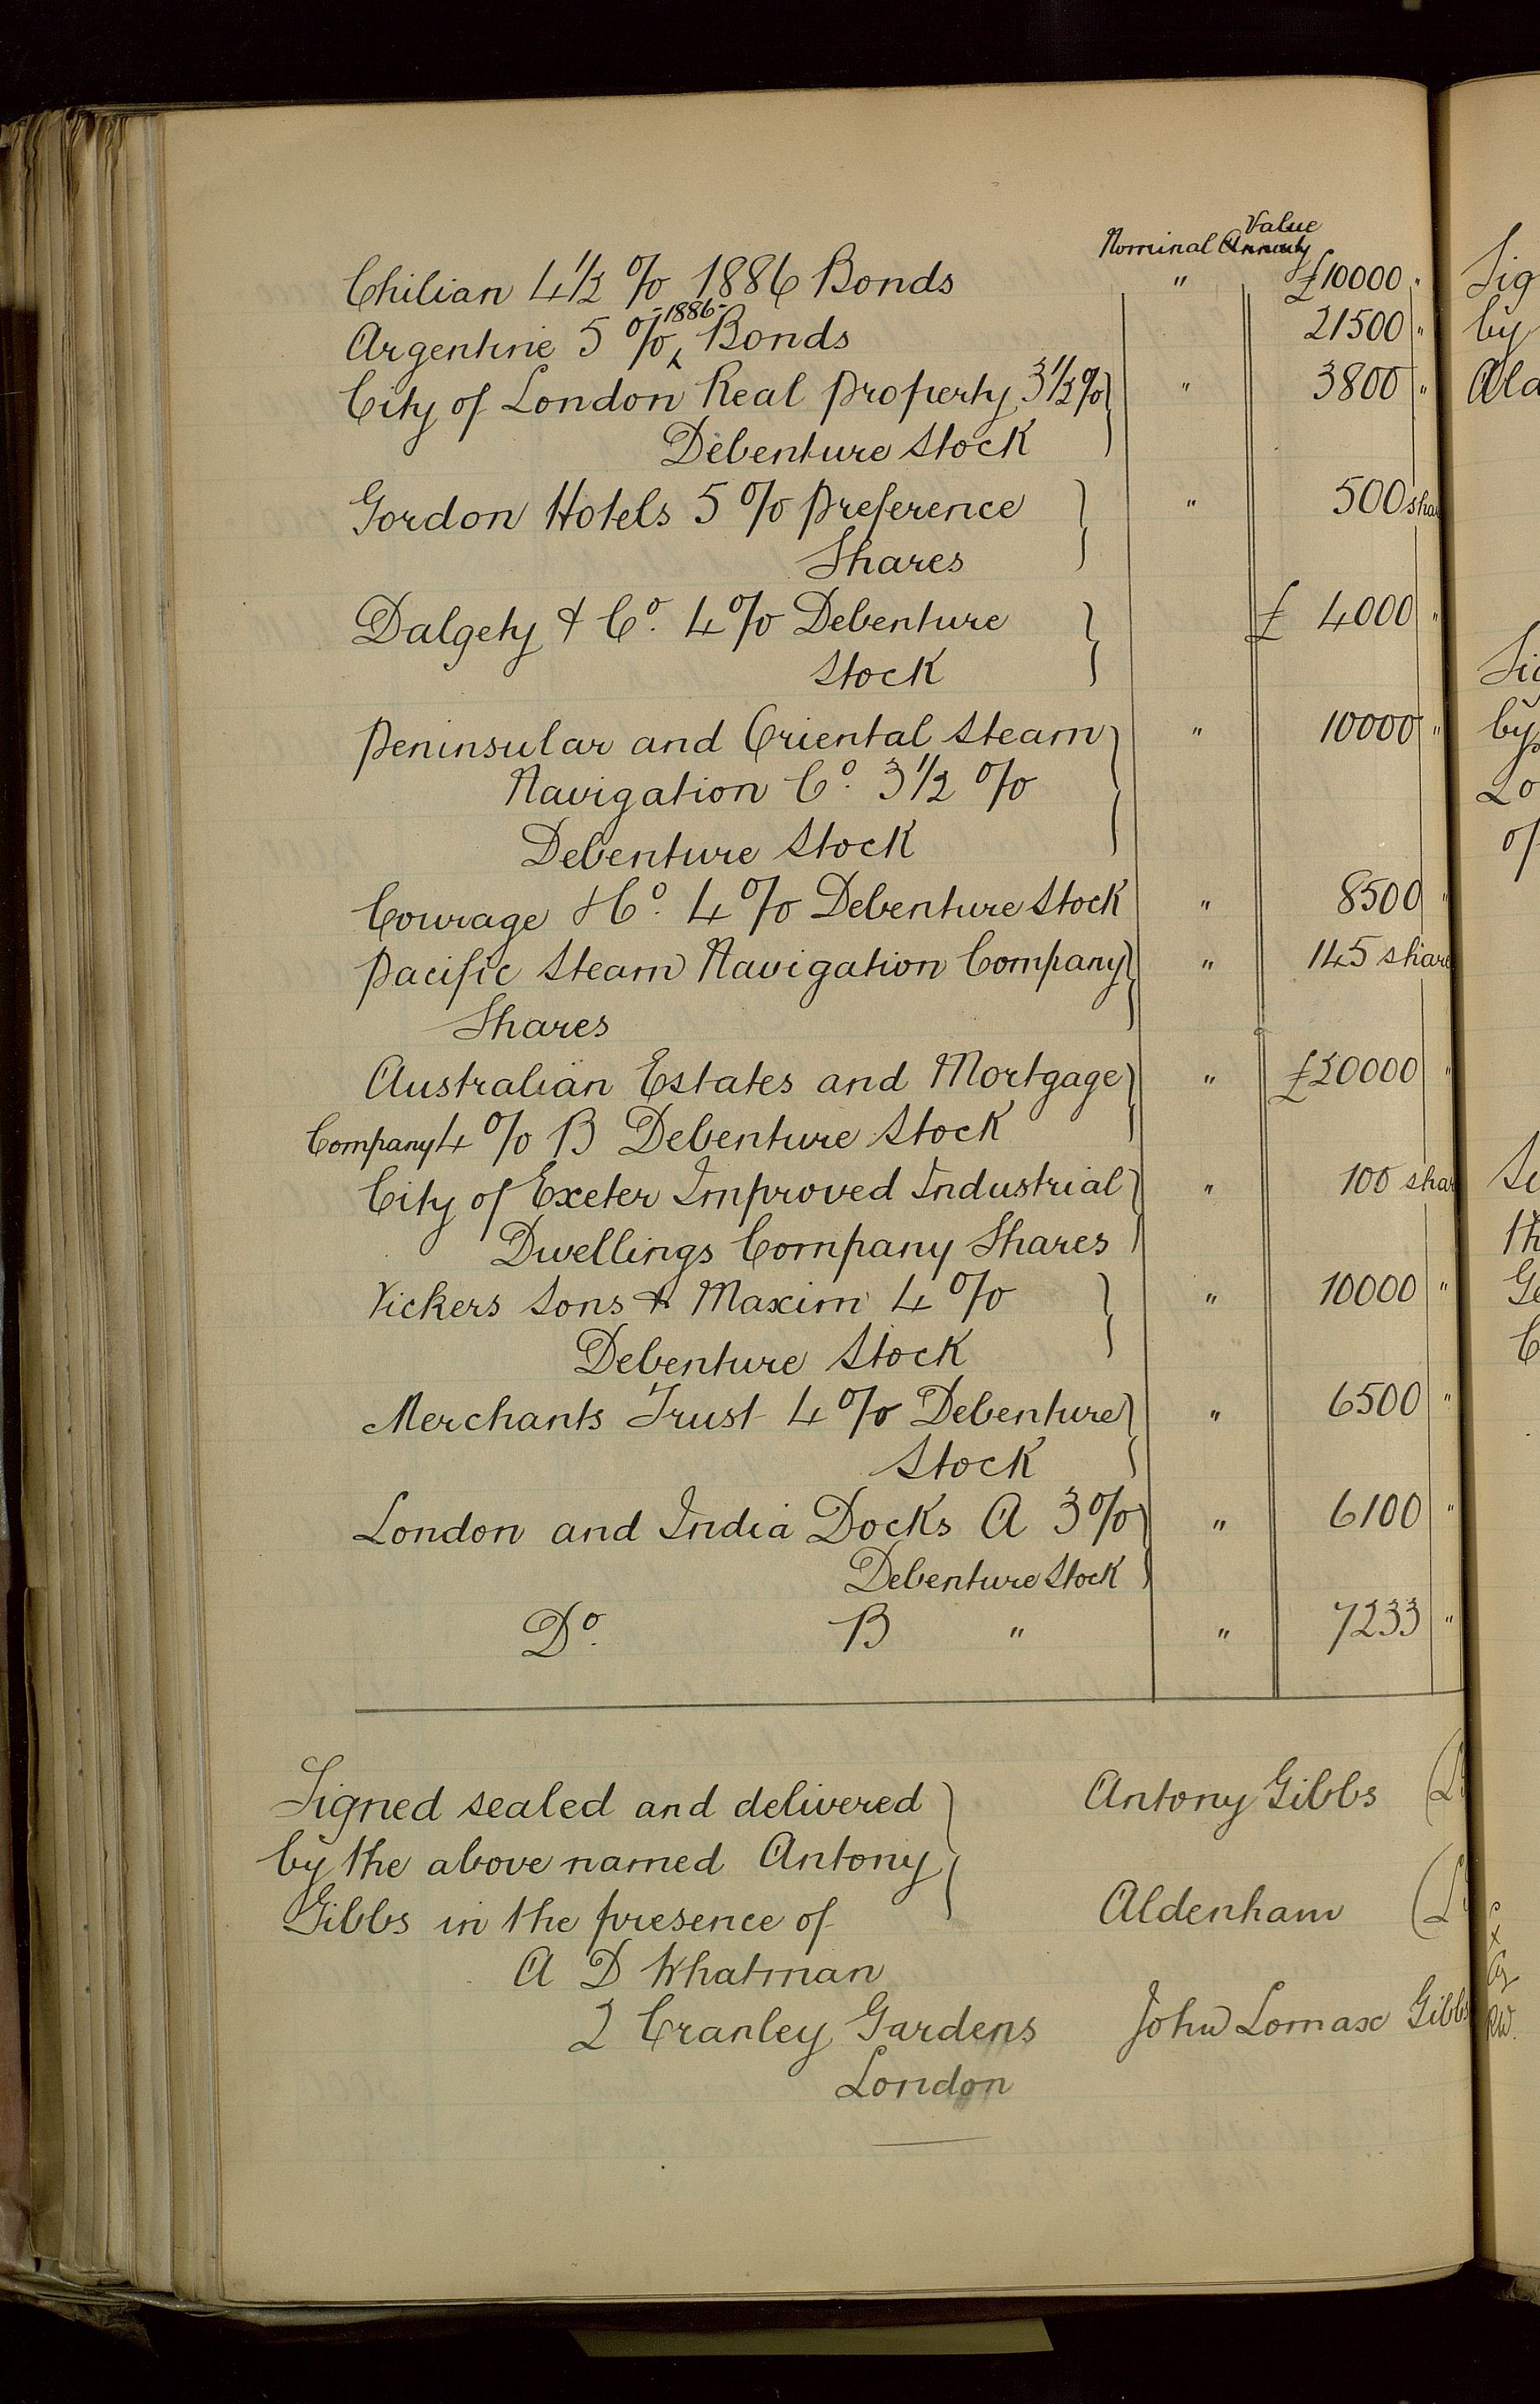 Value
Nominal Annuity
Chilian 4½ % 1886 Bonds " £10000 "
Argentine 5 % -1886- Bonds 21500 "
City of London Real Property 3½% " 3800 "
Debenture Stock
Gordon Hotels 5 % Preference " 500 shar
Shares
Dalgety & Co. 4 % Debenture £ 4000 "
Stock
Peninsular and Oriental Steam " 10000 "
Navigation Co. 3½ %
Debenture Stock
Courage & Co. 4 % Debenture Stock " 8500 "
Pacific Steam Navigation Company " 145 share
Shares
Australian Estates and Mortgage " £20000 "
Company 4 % B Debenture Stock
City of Exeter Improved Industrial " 100 shar
Dwellings Company Shares
Vickers Sons & Maxim 4 % " 10000 "
Debenture Stock
Merchants Trust 4 % Debenture " 6500 "
Stock
London and India Docks A 3 % " 6100 "
Debenture Stock
Do. B " " 7233 "
Signed sealed and delivered
by the above named Antony
Gibbs in the presence of
A D Whatman
2 Cranley Gardens
London
Antony Gibbs (L
Aldenham (L
John Lomax Gibbs
Sig
by
Ald
Sig
by
Lo
of
Si
th
Ge
C
RW.